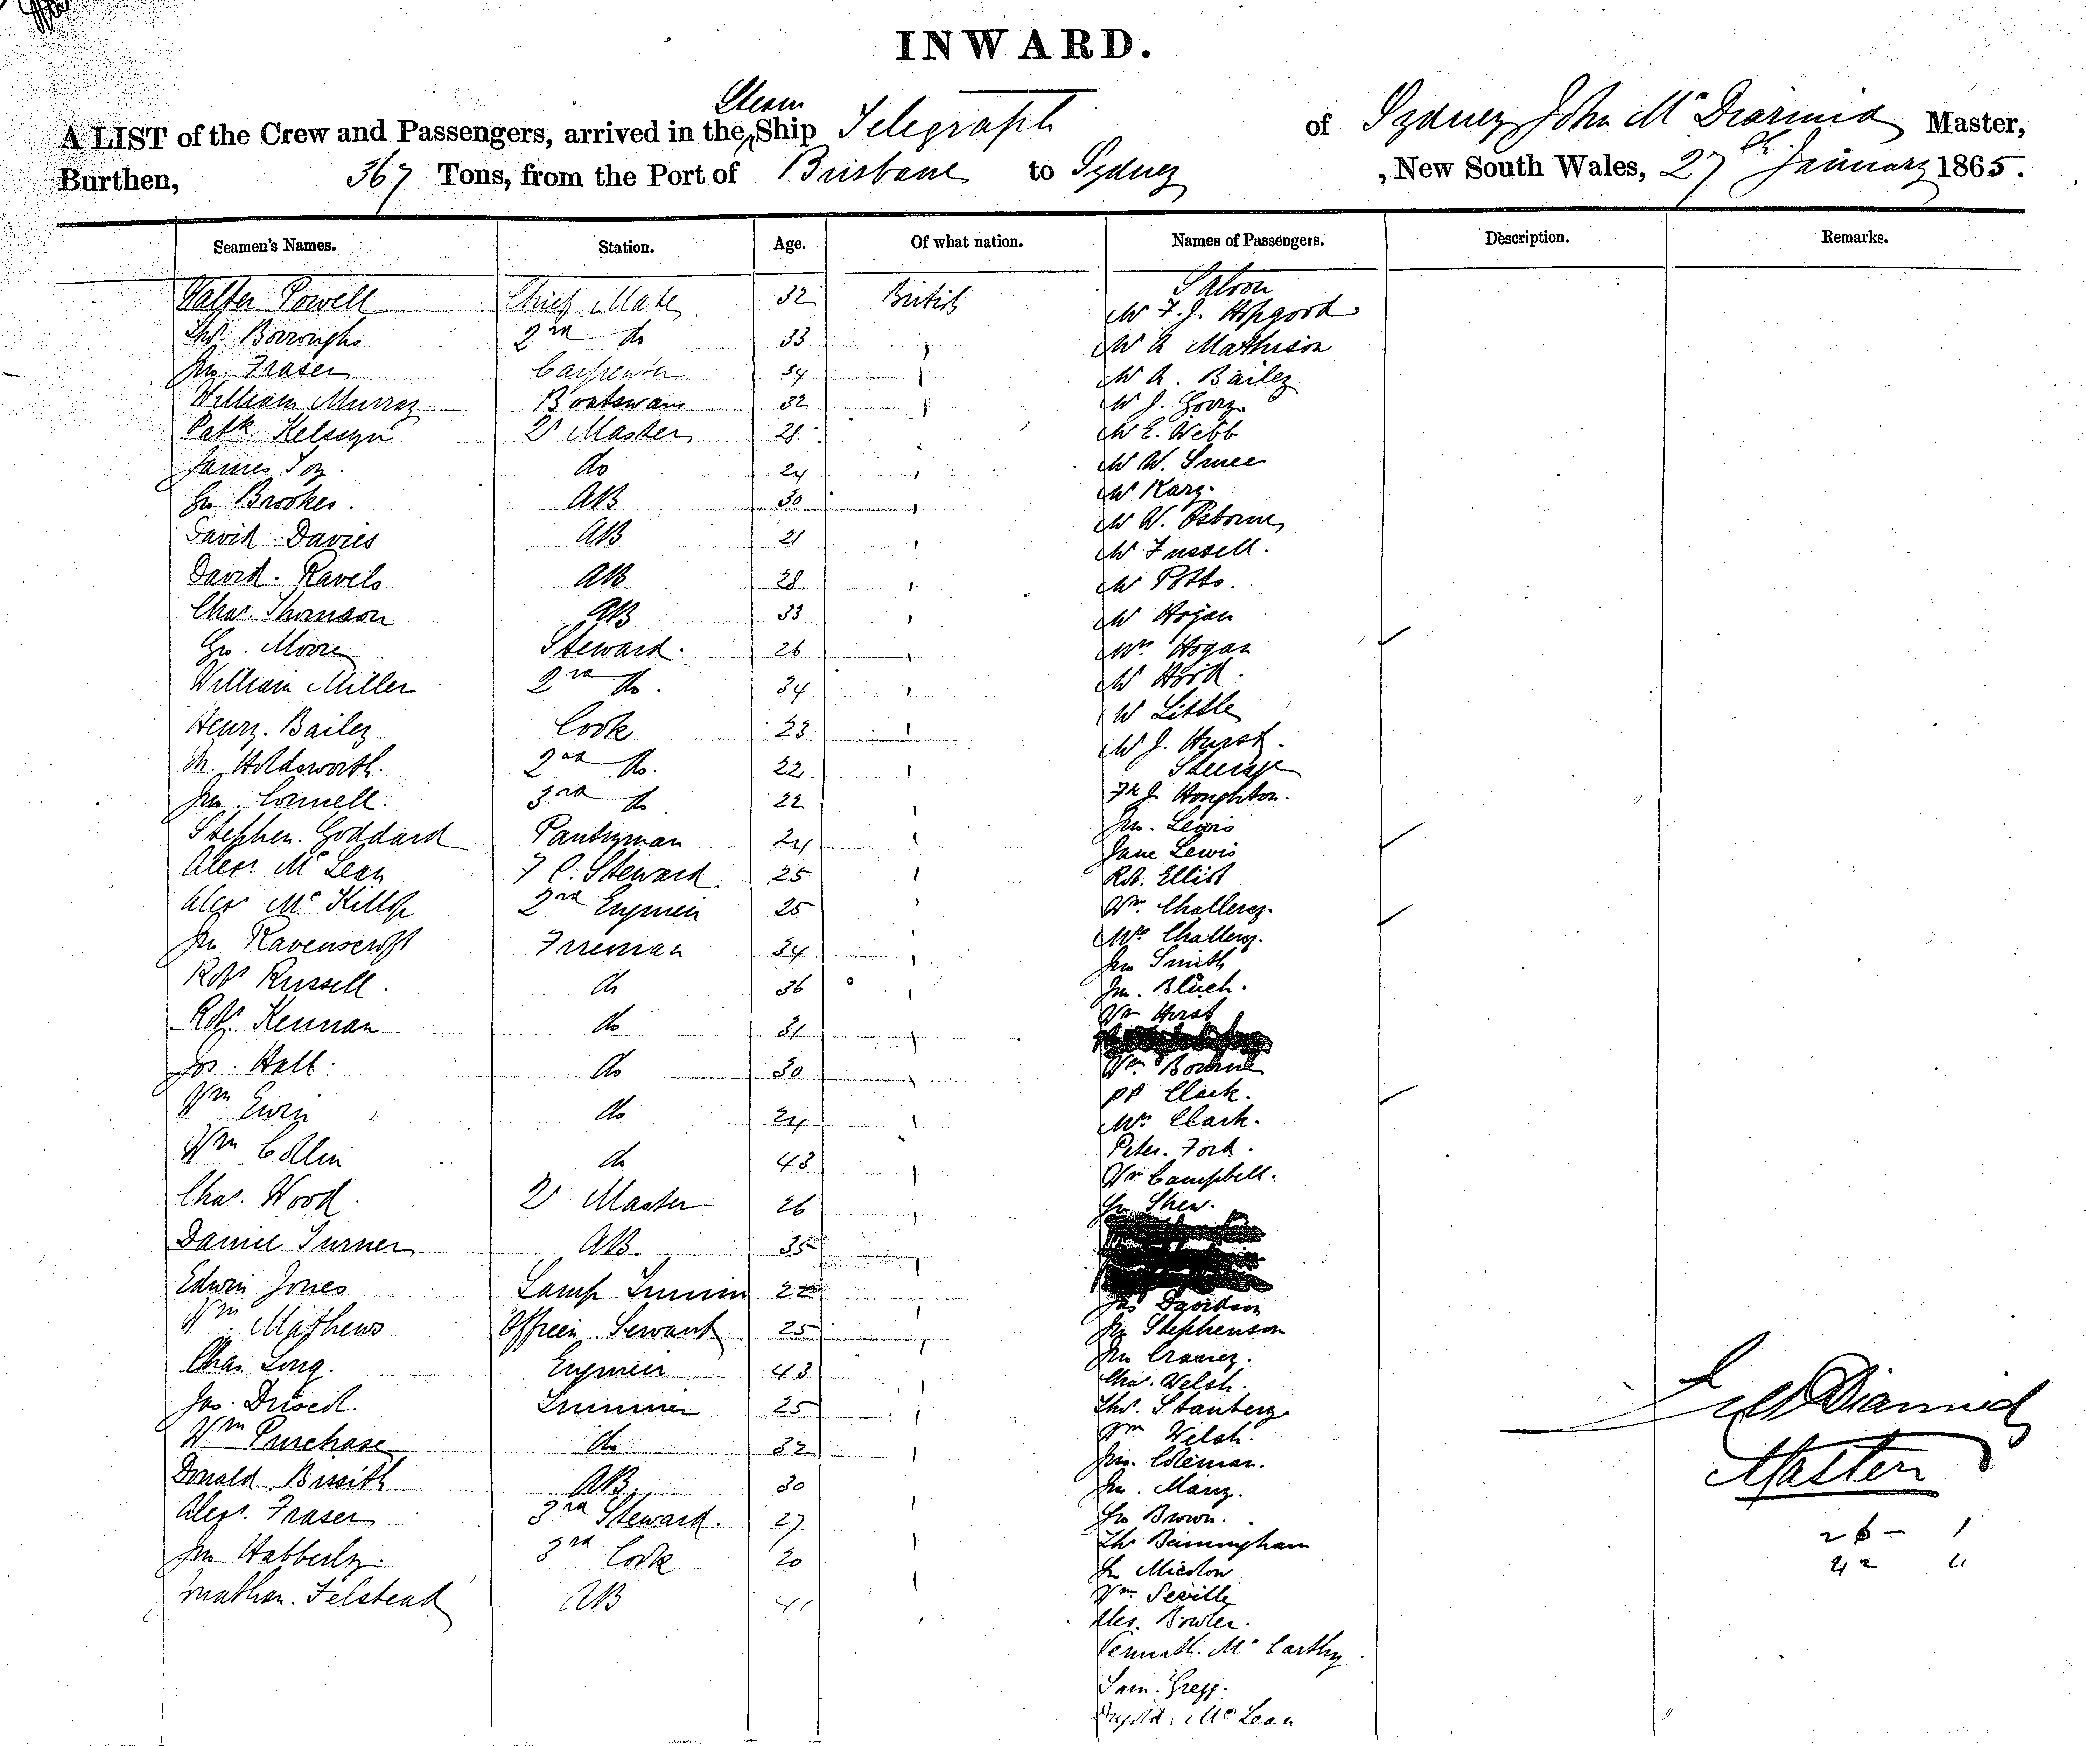 INWARD.
A LIST of the Crew and Passengers, arrived in the Steam Ship Telegraph of Sydney John McDiarmid Master,
Burthen, 367 Tons, from the Port of Brisbane to Sydney , New South Wales, 27th January 1865.
Seamen's Names. Station. Age. Of what nation. Names of Passengers. Description. Remarks.
Saloon
Walter Powell Chief Mate 32 British Mr F. J. Hopgood
Thos Borroughs 2nd do 33 " Mr A Mathison
Jno Fraser Carpenter 34 " Mr A. Bailey
William Murray Boatswain 32 " Mr J.
Patk 2r Master 28 " Mr E. Webb
James Toy do 24 " Mr W.
Geo Brookes. AB 30 " Mr Kary.
David Davies AB 21 " Mr W. Osborne
Mr Fussell.
David. AB 28 " Mr Potts.
Chas. Thomson AB 33 " Mr Hogan
Geo. Moore Steward. 26 " Mrs Hogan
William Miller 2nd do. 34 " Mr Hord.
Mr Little
Henry. Bailey Cook 23 " Mr J. Hurst.
Steerage
M. Holdsworth. 2nd do. 22 "
Jno. Connell. 3rd do 22 " Fk J. Houghton.
Jno. Lewis
Stephen. Goddard Pantryman 24 " Jane Lewis
Alexr. McLean F C. Steward 25 " Rob. Ellist
Alexr McKillop 2nd Engineer 25 " Wm. Challercy.
Mrs Challery.
Jno Ravenscroft Fireman 34 " Jno Smith
Robt Russell. do 36 " Jno. Bluch.
Wm Hirst
Robt. Keenan do 31 "
Jos. Hall. do 30 " Wm. Bourne
Clark.
Wm Ewin do 24 " Mrs Clark.
Peter. Ford.
Wm Collin do 43 " Wm Campbell.
Chas. Wood. 2r Master 26 " Geo Shew.
Daniel Turner AB. 35 "
Edwin Jones Lamp Trimmer 22 " Jas Davidson
Wm. Mathews Officers Servant 25 " Jno Stephenson
Jno
Chas Long. Engineer 43 " Chas. Welsh.
Jas. Trimmer 25 " Thos. Stanbery
Wm Welsh.
Wm Purchase do 32 " Jno. Coleman.
Donald AB 30 " Jno. Many.
Alexr. Fraser 3rd Steward. 27 " Geo Brown.
Jno Habberly. 3rd Cook 20 " Thos Bermingham
Jonathan. Felstead AB 41 " Wm Seville
Alex. Bowler.
McCarthy
Sam. Gregg.
McLean
J McDiarmid
Master
26 - 1
42 "